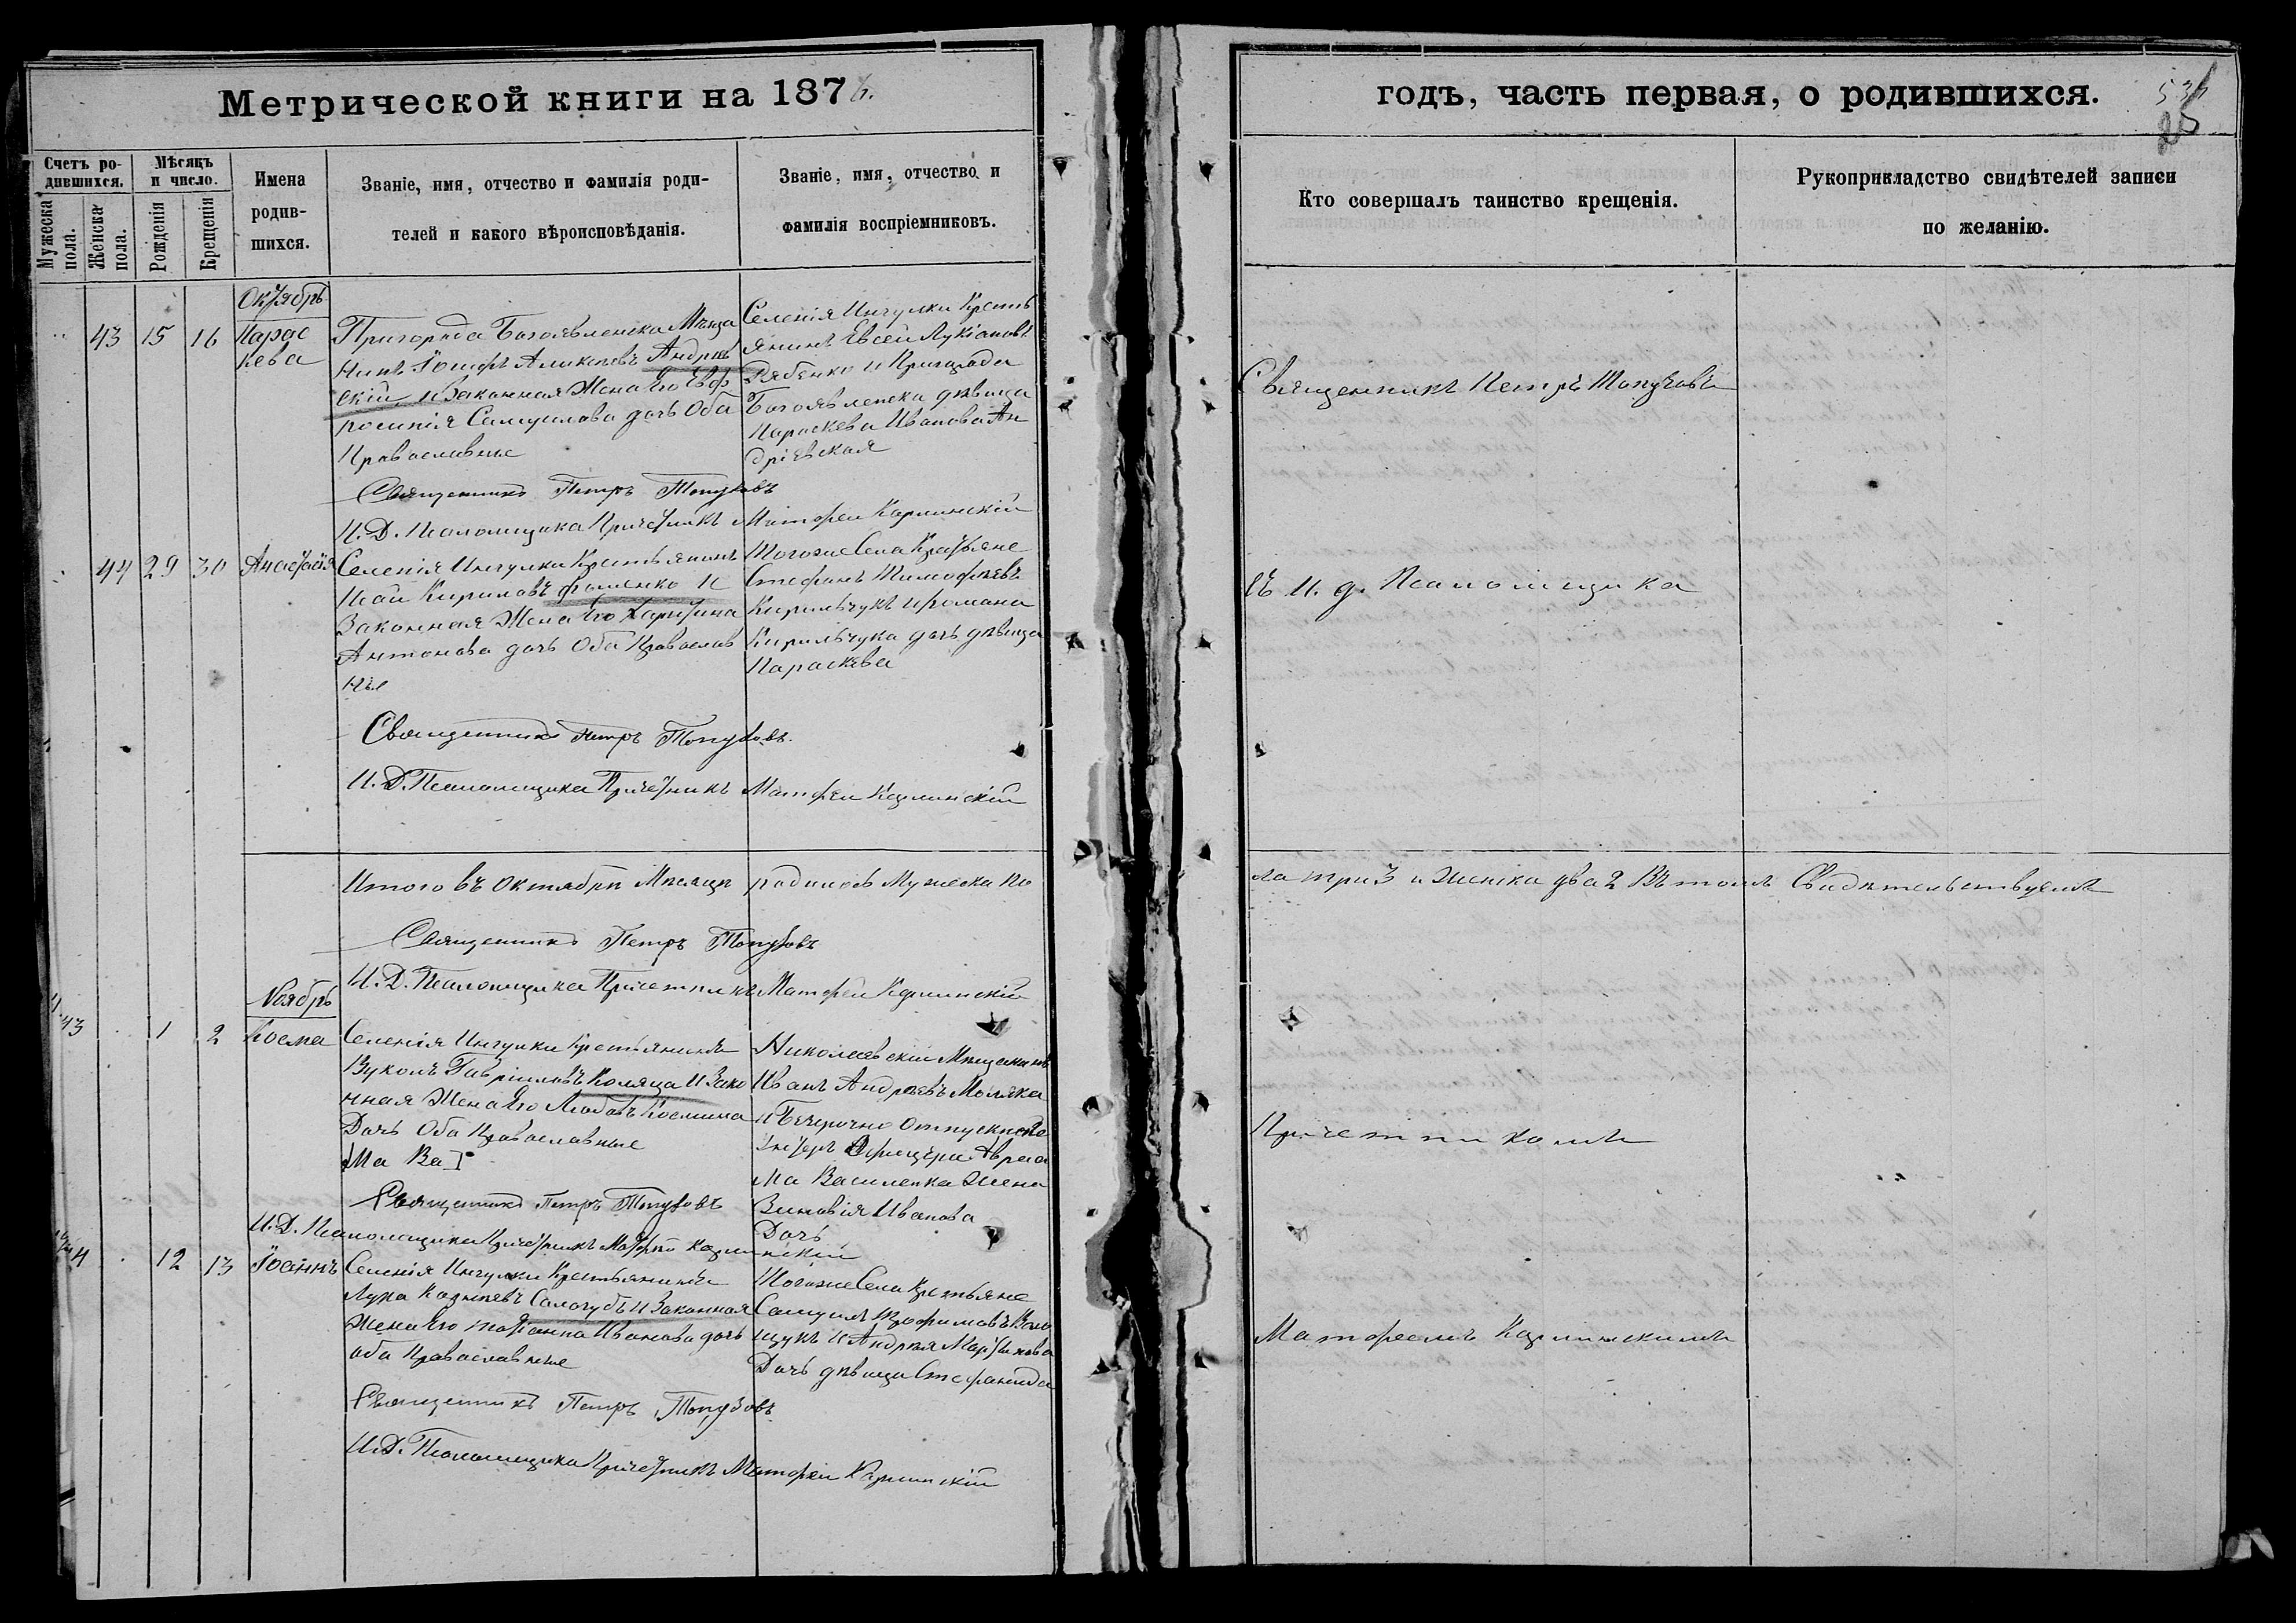 Метрической книги на 1876.
годъ, часть первая, о родившихся.
Счетъ ро-
дившихся.
Мѣсяцъ
и число.
Мужеска
пола.
Женска
пола.
Рожденія
Крещенія
Имена
родив-
шихся.
Званіе, имя, отчество и фамилія роди-
телей и какого вѣроисповѣданія.
Званіе, имя, отчество и
фамилія воспріемниковъ.
Кто совершалъ таинство крещенія.
Рукоприкладство свидѣтелей записи
по желанію.
Октябрь
43 15 16 Парас
кева
Пригорода Богоявленска Мѣща
нинъ Іосифъ Алексѣевъ Андріев
скій и Законная Жена Его Евф
росинія Самуилова дочь Оба
Православные
Селенія Ингулки Кресть
янинъ Евсей Лукіановъ
Рябенко и Пригорода
Богоявленска дѣвица
Параскева Иванова Ан
дріевская
Священникъ Петръ Топузовъ
Священникъ Петръ Топузовъ
И. Д. Псаломщика Причетникъ Матфей Карминскій
44 29 30 Анастасія
Селенія Ингулки Крестьянинъ
Исай Кириловъ Фоменко и
Законная Жена Его Харитина
Антонова дочь Оба Православ
ные
Тогоже Села Крестьяне
Стефанъ Тимофѣевъ
Кирильчукъ и Романа
Кирильчука дочь дѣвица
Параскева
съ и. д. Псаломщика
Священникъ Петръ Топузовъ.
И. Д. Псаломщика Причетникъ Матфей Карминскій
Итого въ Октябрѣ Мѣсяцѣ родилось Мужеска по
ла три 3 и Женска два 2 Въ томъ Свидѣтельствуемъ
Священникъ Петръ Топузовъ
И. Д. Псаломщика Причетникъ Матфей Карминскій
Ноябрь
43 1 2 Косма
Селенія Ингулки Крестьянинъ
Вуколъ Гавріиловъ Коляца И Зако
нная Жена Его Любовь Космина
Дочь Оба Православные
Ма Ва
Николаевскій Мѣщанинъ
Иванъ Андреевъ Моляка
и Безсрочно Отпускного
Унтеръ Офицера Авраа
ма Василенка Жена
Зиновія Иванова
Дочь
Причетникомъ
Священникъ Петръ Топузовъ
И. Д. Псаломщика Причетникъ Матфей Карминскій
44 12 13 Іоаннъ
Селенія Ингулки Крестьянинъ
Лука Салогубъ И Законная
Жена Его Татіанна Иванова дочь
Оба Православные
Тогоже Села Крестьяне
Самуилъ Трофимовъ
и Андрея Мартинова
Дочь дѣвица Стефанида
Матфеемъ Карминскимъ
Священникъ Петръ Топузовъ
И. Д. Псаломщика Причетникъ Матфей Карминскій